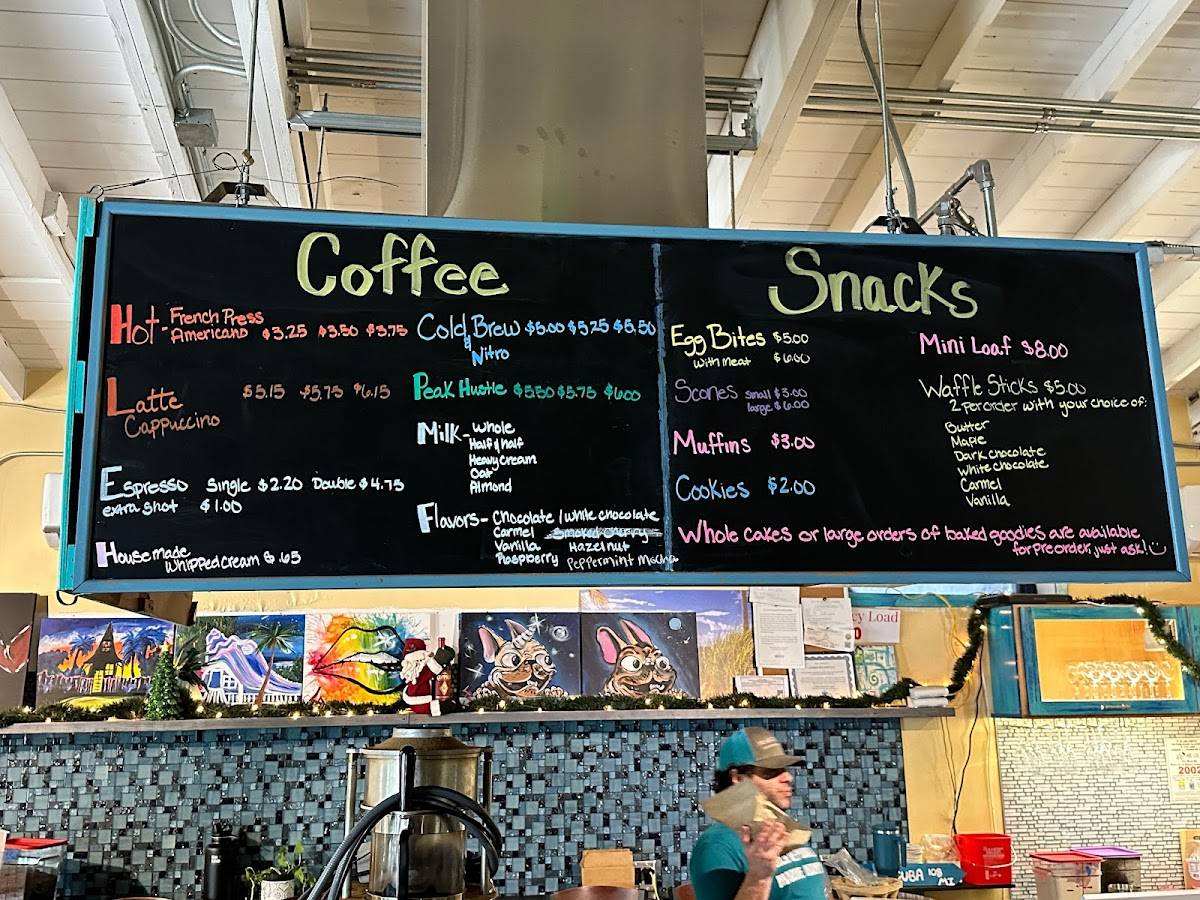 Coffee
Hot - French Press
Americano $3.25 $3.50 $3.75
Latte $5.15 $5.75 $6.15
Cappuccino
Espresso Single $2.20 Double $4.75
extra shot $1.00
Housemade
Whipped cream $.65
Cold Brew $5.00 $5.25 $5.50
&
Nitro
Peak Hustle $5.50 $5.75 $6.00
Milk - Whole
Half & half
Heavy cream
Oat
Almond
Flavors - Chocolate / white chocolate
Carmel Smoked Cherry
Vanilla Hazelnut
Raspberry Peppermint Mocha
Snacks
Egg Bites $5.00
with meat $6.00
Scones small $3.00
large $6.00
Muffins $3.00
Cookies $2.00
Mini Loaf $8.00
Waffle Sticks $5.00
2 per order with your choice of:
Butter
Maple
Dark chocolate
White chocolate
Carmel
Vanilla
Whole cakes or large orders of baked goodies are available
for preorder, just ask!
cy Load
2002
CUBA 108
MI